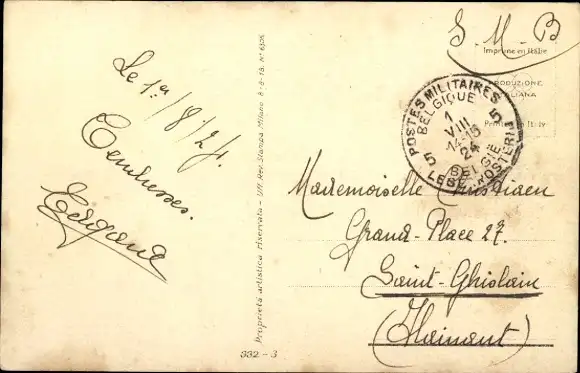 Le 1er/8/24.
Tendresses.
Edgard
Proprietà artistica riservata - Uff. Rev. Stampa Milano 6-6-18 N°
332 - 3
S. M. B
Imprimé en Italie
PRODUZIONE
ITALIANA
Printed in Italy
POSTES MILITAIRES
BELGIQUE
1
VIII
14-15
24
5
5
BELGIË
LEGERPOSTERIJ
Mademoiselle Christiaen
Grand-Place 27.
Saint-Ghislain
(Hainaut)